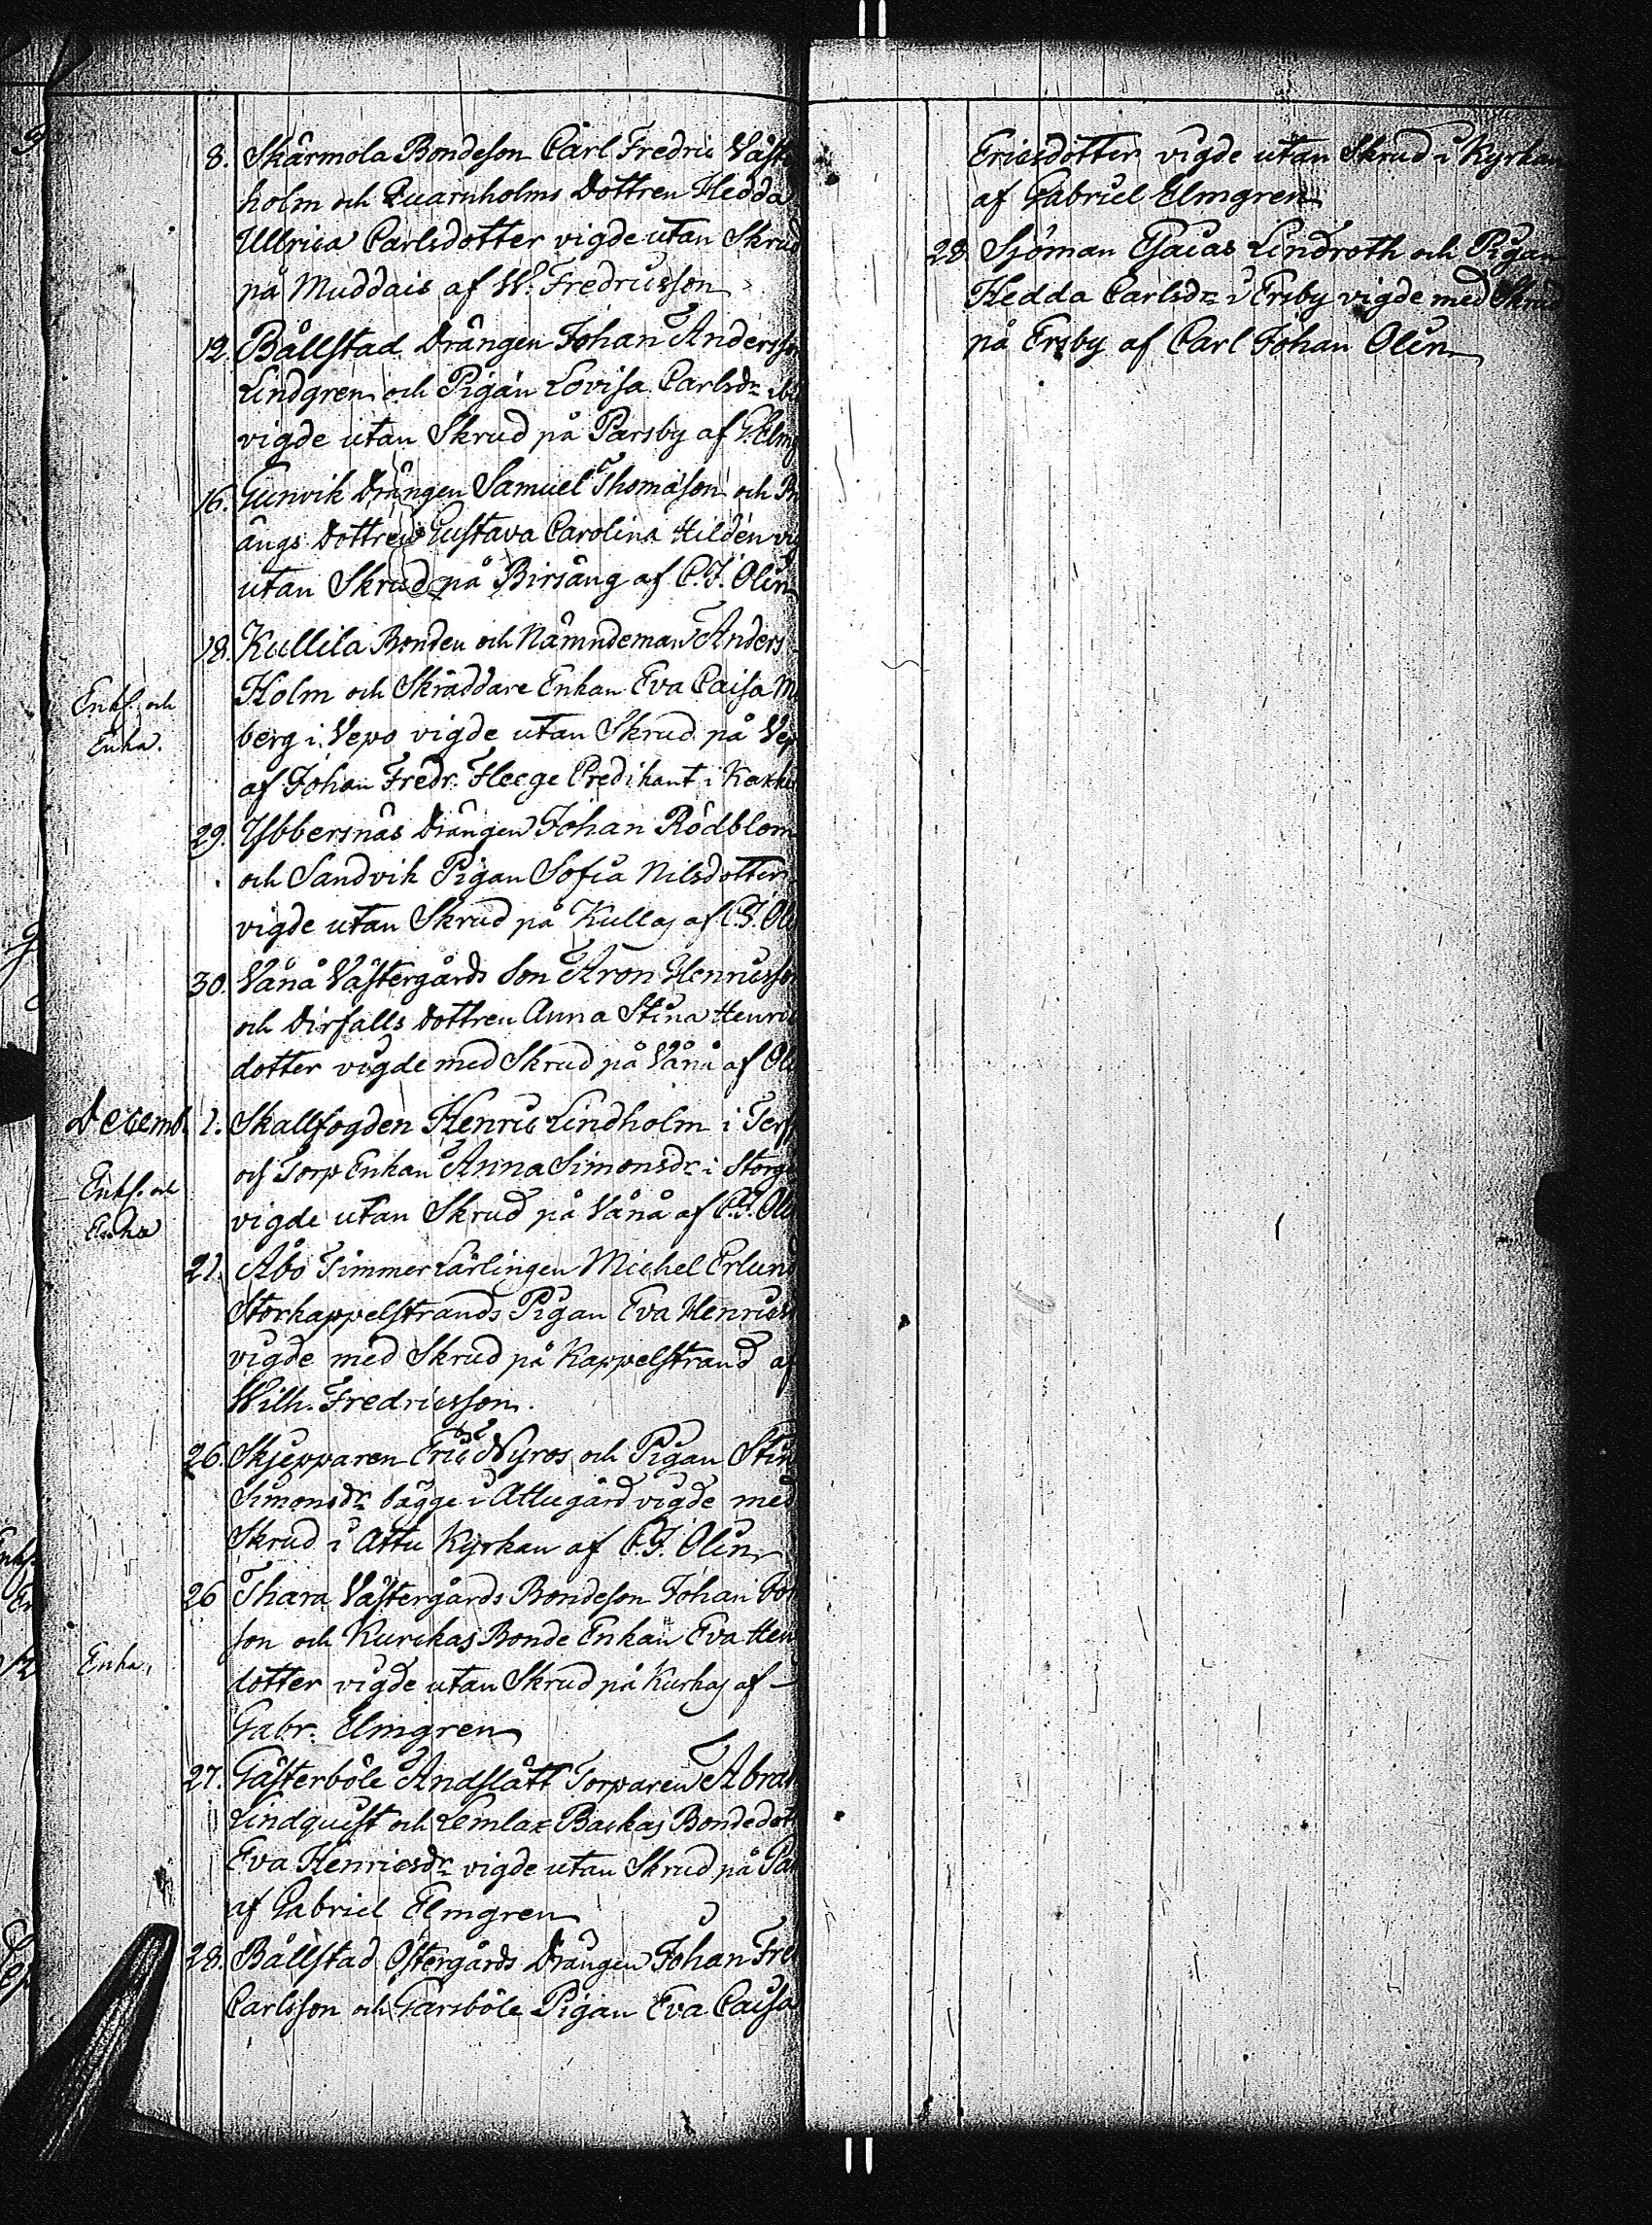 8. Skärmola Bondeson Carl Fredric Väst
holm och Quarnholms Dottren Hedda
Ullrica Carlsdotter vigde utan Skrud
på Muddais af W. Fredricsson
12. Bållstad Drängen Johan Andersson
Lindgren och Pigan Lovisa Carlsdr
vigde utan Skrud på Parsby af G. Elmg
16. Gunvik Drängen Samuel Thomasson och
ängs Dottren Gustava Carolina Hildén
utan Skrud på Birsäng af C.J. Olin
18. Kullila Bonden och Nämndeman Anders
Holm och Skräddare Enkan Eva Caisa
Enkl. och
berg i Vepo vigde utan Skrud på Vep
Enka.
af Johan Fredr. Heege Predikant i
29. Ybbersnäs Drängen Johan Rödblom
och Sandvik Pigan Sofia Nilsdotter
vigde utan Skrud på Kullas af C.J. Oli
30. Vånå Västergårds Son Aron Henricsson
och Dirfalls Dottren Anna Stina Henric
dotter vigde med Skrud på Vånå af Oli
Decemb. 1. Skallfogden Henric Lindholm i
och Torp Enkan Anna Simonsdr i Storg
Enkl. och
vigde utan Skrud på Vånå af C.J. Oli
Enka
21. Åbo Timmer Lärlingen Michel Erlund
Storkappelstrands Pigan Eva Henrics
vigde med Skrud på Kappelstrand af
Wilh. Fredricsson.
26. Skjepparen Eric Nyros och Pigan Stin
Simonsdr bägge i Attugård vigde med
Skrud i Attu Kyrkan af C.J. Olin
26 Thara Västergårds Bondeson Johan
son och Kurckas Bonde Enkan Eva Hen
Enka.
dotter vigde utan Skrud på Kurkas af
Gabr. Elmgren
27. Gästerböle Andslätt Torparen Abra
Lindquist och Lemlax Backas Bondedot
Eva Henricsdr vigde utan Skrud på Pa
af Gabriel Elmgren
28. Bållstad Östergårds Drängen Johan Fre
Carlsson och Garsböle Pigan Eva Caisa
Ericsdotter vigde utan Skrud i Kyrkan
af Gabriel Elmgren
28 Sjöman Esaias Lindroth och Pigan
Hedda Carlsdr i Ersby vigde med Skrud
på Ersby af Carl Johan Olin